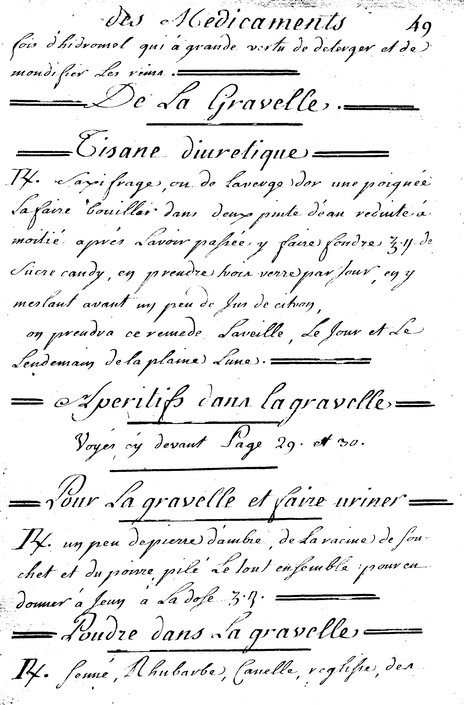 des Medicaments 49
fois d'hidromel qui á grande vertu de deterger et de
mondifier Les reins.
De La Gravelle.
Tisane diuretique
℞. Saxifrage, ou de Laverge dor une poignée
La faire bouillir dans deux pinte d'eau reduite á
moitié aprés Lavoir passée, y faire fondre ʒ.ij de
Sucre candy, en prendre trois verre par Jour, en y
meslant avant un peu de Jus de citron,
on prendra ce remede Laveille, Le Jour et Le
Lendemain de la plaine Lune.
Aperitifs dans la gravelle
Voyés cy devant Page 29. et 30.
Pour La gravelle et faire uriner
℞. un peu de pierre d'ambre, de La racine de sou-
chet et du poivre, pilé Le tout ensemble pour en
donner á Jeun á La dose
Poudre dans La gravelle
℞. senné, Rhubarbe, Canelle, reglisse, des